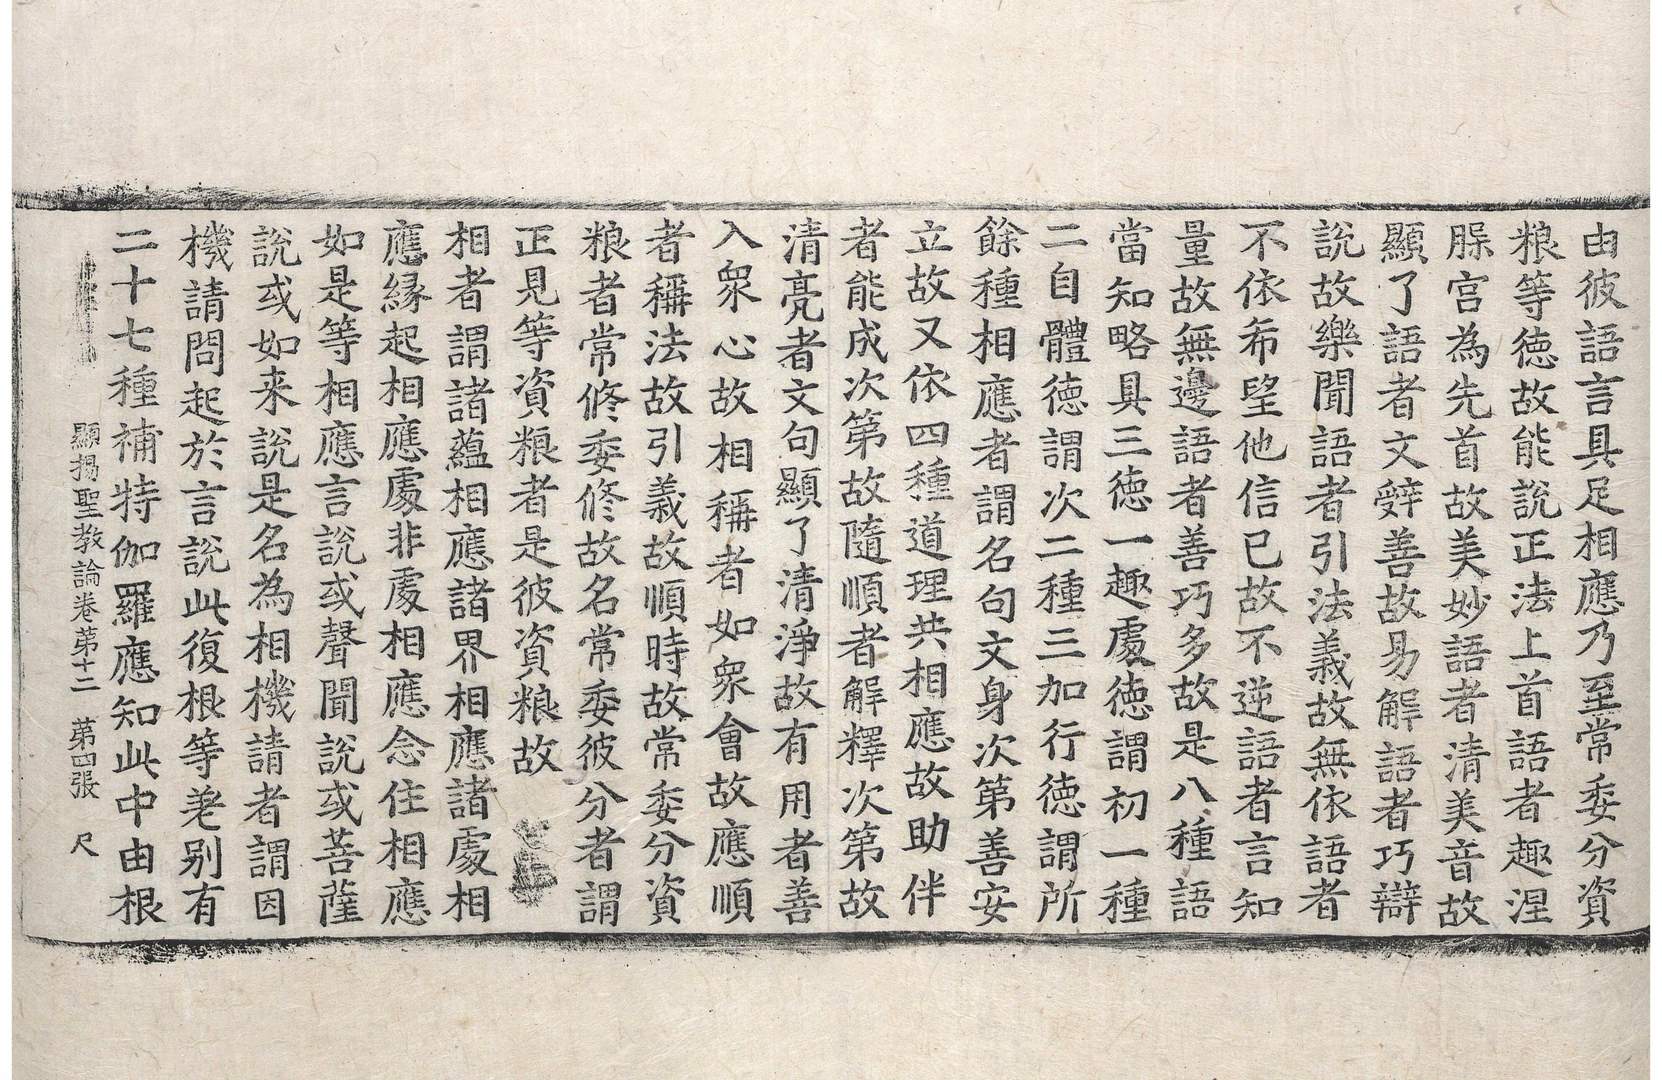 由彼語言具足相應乃至常委分資
粮等徳故能說正法上首語者趣涅
𦝫宫為先首故美妙語者清美音故
顯了語者文辤善故易解語者巧辯
說故樂聞語者引法義故無依語者
不依希望他信已故不逆語者言知
量故無邊語者善巧多故是八種語
當知略具三徳一趣處徳謂初一種
二自體徳謂次二種三加行徳謂所
餘種相應者謂名句文身次第善安
立故又依四種道理共相應故助伴
者能成次第故隨順者解釋次第故
清亮者文句顯了清淨故有用者善
入衆心故相稱者如衆會故應順
者稱法故引義故順時故常委分資
粮者常修委修故名常委彼分者謂
正見等資粮者是彼資粮故
相者謂諸蘊相應諸界相應諸處相
應縁起相應處非處相應念住相應
如是等相應言說或聲聞說或菩薩
說或如来說是名為相機請者謂因
機請問起於言說此復根等差别有
二十七種補特伽羅應知此中由根
顯揚聖教論卷第十二 第四張 尺